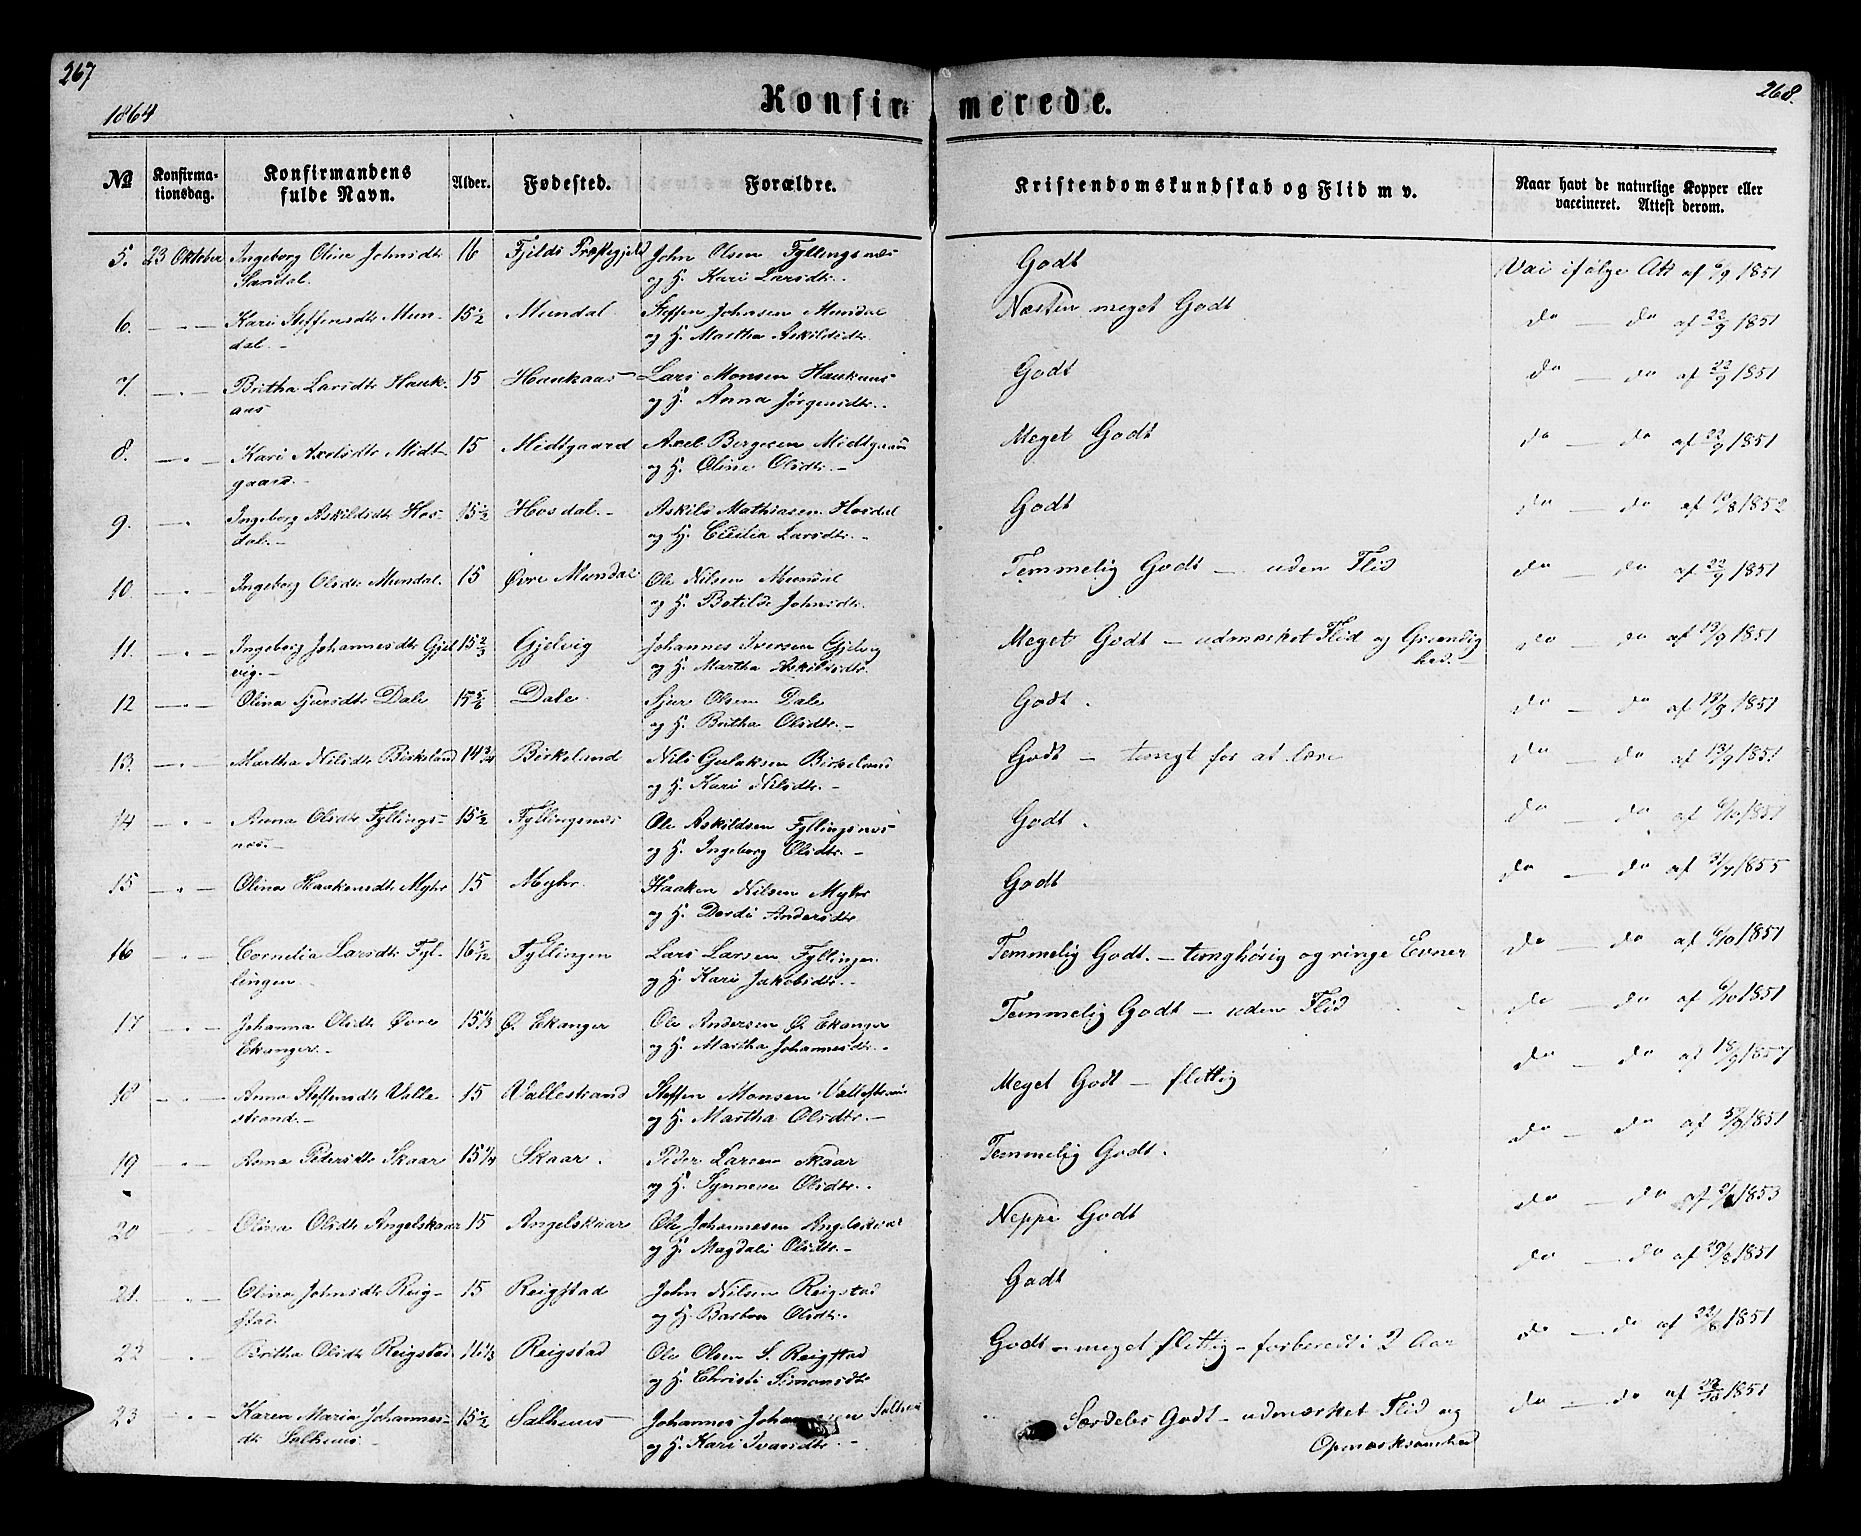 267
268.
1864
Konfirmerede.
№ Konfirmationsdag. Konfirmandens fulde Navn. Alder. Fødested. Forældre. Kristendomskundskab og Flid m v. Naar havt de naturlige Kopper eller vaccineret. Attest derom.
5. 23 Oktober Ingeborg Oline Johnsdtr 16 Fjelds Præstegjeld John Olsen Fyllingsnæs Godt Vac ifølge Att af 6/9 1851
Sandal. og H. Kari Larsdtr.
6. Kari Steffensdtr Mun- 15½ Mundal Steffen Johnsen Mundal Næsten meget Godt do — do af 22/9 1851
dal. og H. Martha Askildsdtr.
7. Britha Larsdtr Hauk- 15 Haukaas Lars Monsen Haukaas Godt do — do af 22/9 1851
aas og H. Anna Jørgensdtr.
8. Kari Axelsdtr Midt- 15 Midtgaard Axel Bergesen Midtgaard Meget Godt do — do af 22/9 1851
gaard. og H. Oline Olsdtr.
9. Ingeborg Askildsdtr Hos- 15½ Hosdal. Askild Mathiasen Hosdal Godt do — do af 1852
dal. og H. Cecilia Larsdtr.
10. Ingeborg Olsdtr Mundal. 15 Øvre Mundal Ole Nilsen Mundal Temmelig Godt — uden Flid do — do af 22/9 1851
og H. Botilde Johnsdtr.
11. Ingeborg Johannesdtr Gjel 15⅔ Gjelvig Johannes Iversen Gjelvig Meget Godt — udmærket Flid og Grundig do — do af 13/9 1851
vig. og H. Martha Askildsdtr. hed.
12 Olina Sjursdtr Dale 15 5/6 Dale Sjur Olsen Dale Godt. do — do af 1851
og H. Britha Olsdtr.
13. Martha Nilsdtr Birkeland 14¾ Birkeland Nils Gulaksen Birkeland Godt — tungt for at lære do — do af 13/9 1851
og H. Kari Nilsdtr.
14 Anna Olsdtr Fyllings- 15½ Fyllingsnæs Ole Askildsen Fyllingsnæs Godt. do — do af 6/10 1851
næs og H. Ingeborg Olsdtr.
15 Olina Haakensdtr Myhr 15 Myhr Haaken Nilsen Myhr Godt do — do af 1855
og H. Dordi Andersdtr.
16 Cornelia Larsdtr Fyl- 16 5/12 Fyllingen Lars Larsen Fyllingen Temmelig Godt. — tunghørig og ringe Evner do — do af 6/10 1851
lingen og H. Kari Jakobsdtr.
17 Johanna Olsdtr Øvre 15⅓ Ø. Ekanger Ole Andersen Ø. Ekanger Temmelig Godt — uden Flid do — do af 6/10 1851
Ekanger. og H. Martha Johannesdtr.
18 Anna Steffensdtr Valle 15 Vallestrand Steffen Monsen Vallestrand Meget Godt — flittig do — do af
strand. og H. Martha Olsdtr.
19 Anna Pedersdtr Skaar 15¼ Skaar. Peder Larsen Skaar Temmelig Godt. do — do af 1851
og H. Synneve Olsdtr.
20 Olina Olsdtr Angelskaar 15 Angelskaar Ole Johannesen Angelskaar Neppe Godt do — do af 1853
og H. Magdali Olsdtr.
21. Olina Johnsdtr Reig- 15 Reigstad John Nilsen Reigstad Godt do — do af 1851
stad. og H. Barbro Olsdtr.
22 Britha Olsdtr Reigstad 16⅓ Reigstad Ole Olsen S. Reigstad Godt — meget flittig — forberedt i 2 Aar do — do af 22/8 1851
og H. Christi Simonsdtr
23 Karen Maria Johannes- 15½ Salhuus Johannes Salhuus Særdeles Godt — udmærket Flid og do — do af 1851
dtr Salhuus. og H. Kari Ivarsdtr. Opmærksomhed